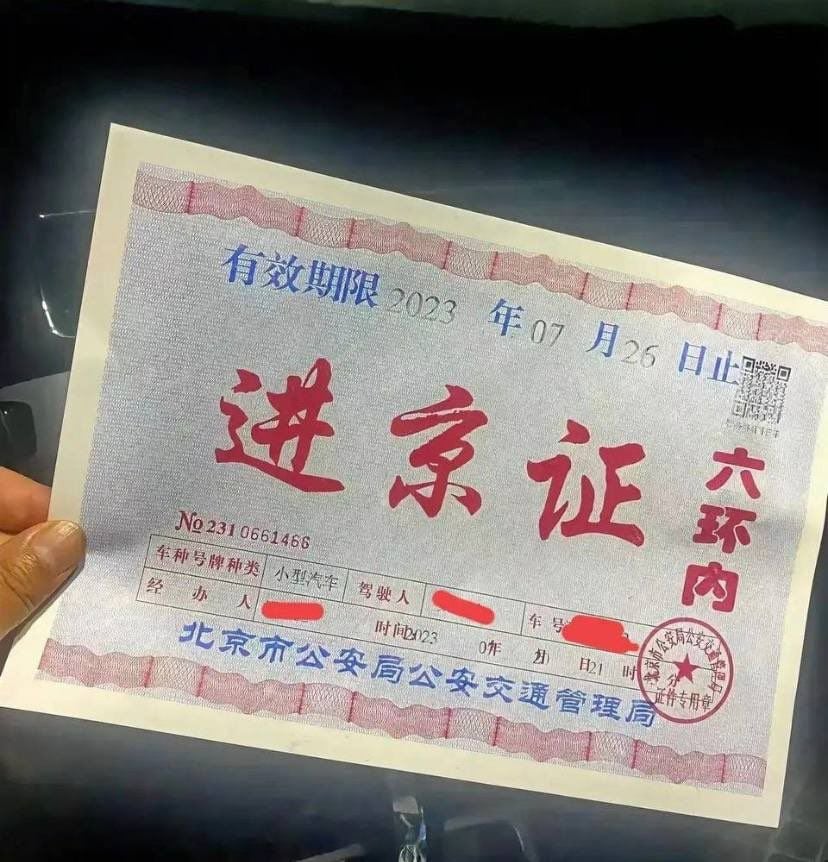 有效期限2023年07月26日止
进京证
六环内
No 2310661466
车种号牌种类 小型汽车 驾驶人 车号
经办人 时间2023 年 日21时 分
北京市公安局公安交通管理局
北京市公安局公安交通管理局
证件专用章